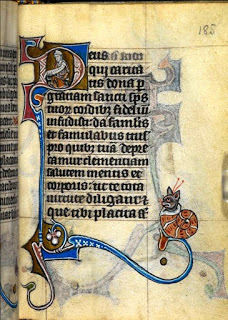 185
Deus
qui carita
tis dona p
gratiam sancti sps
tuoꝝ cordibꝫ fideliū
infudisti: da famulis
et famulabus tuis
pro quibꝫ tuā depre
camur clementiam
salutem mentis et
corporis: ut te tota
uirtute diligant ⁊
que tibi placita st